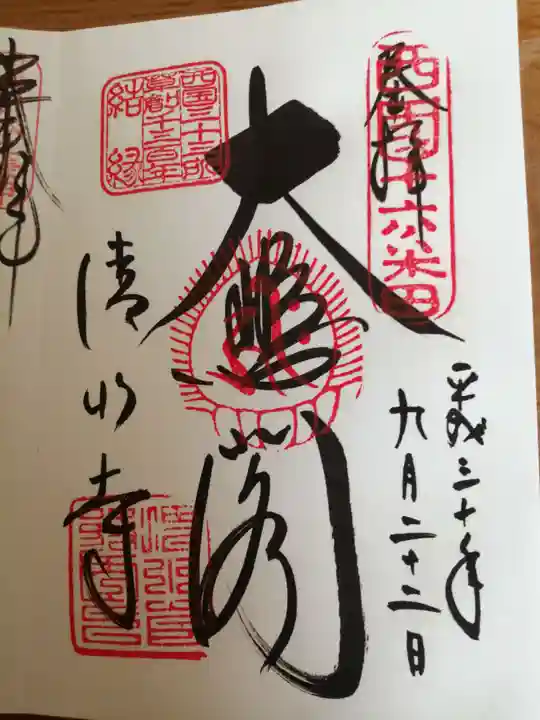 奉拝
西国十六番
平成三十年
九月二十二日
大悲閣
西国三十三所
草創千三百年
結縁
清水寺